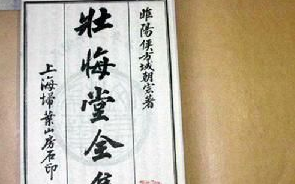 睢陽侯方域朝宗著
壯悔堂全集
上海掃葉山房石印